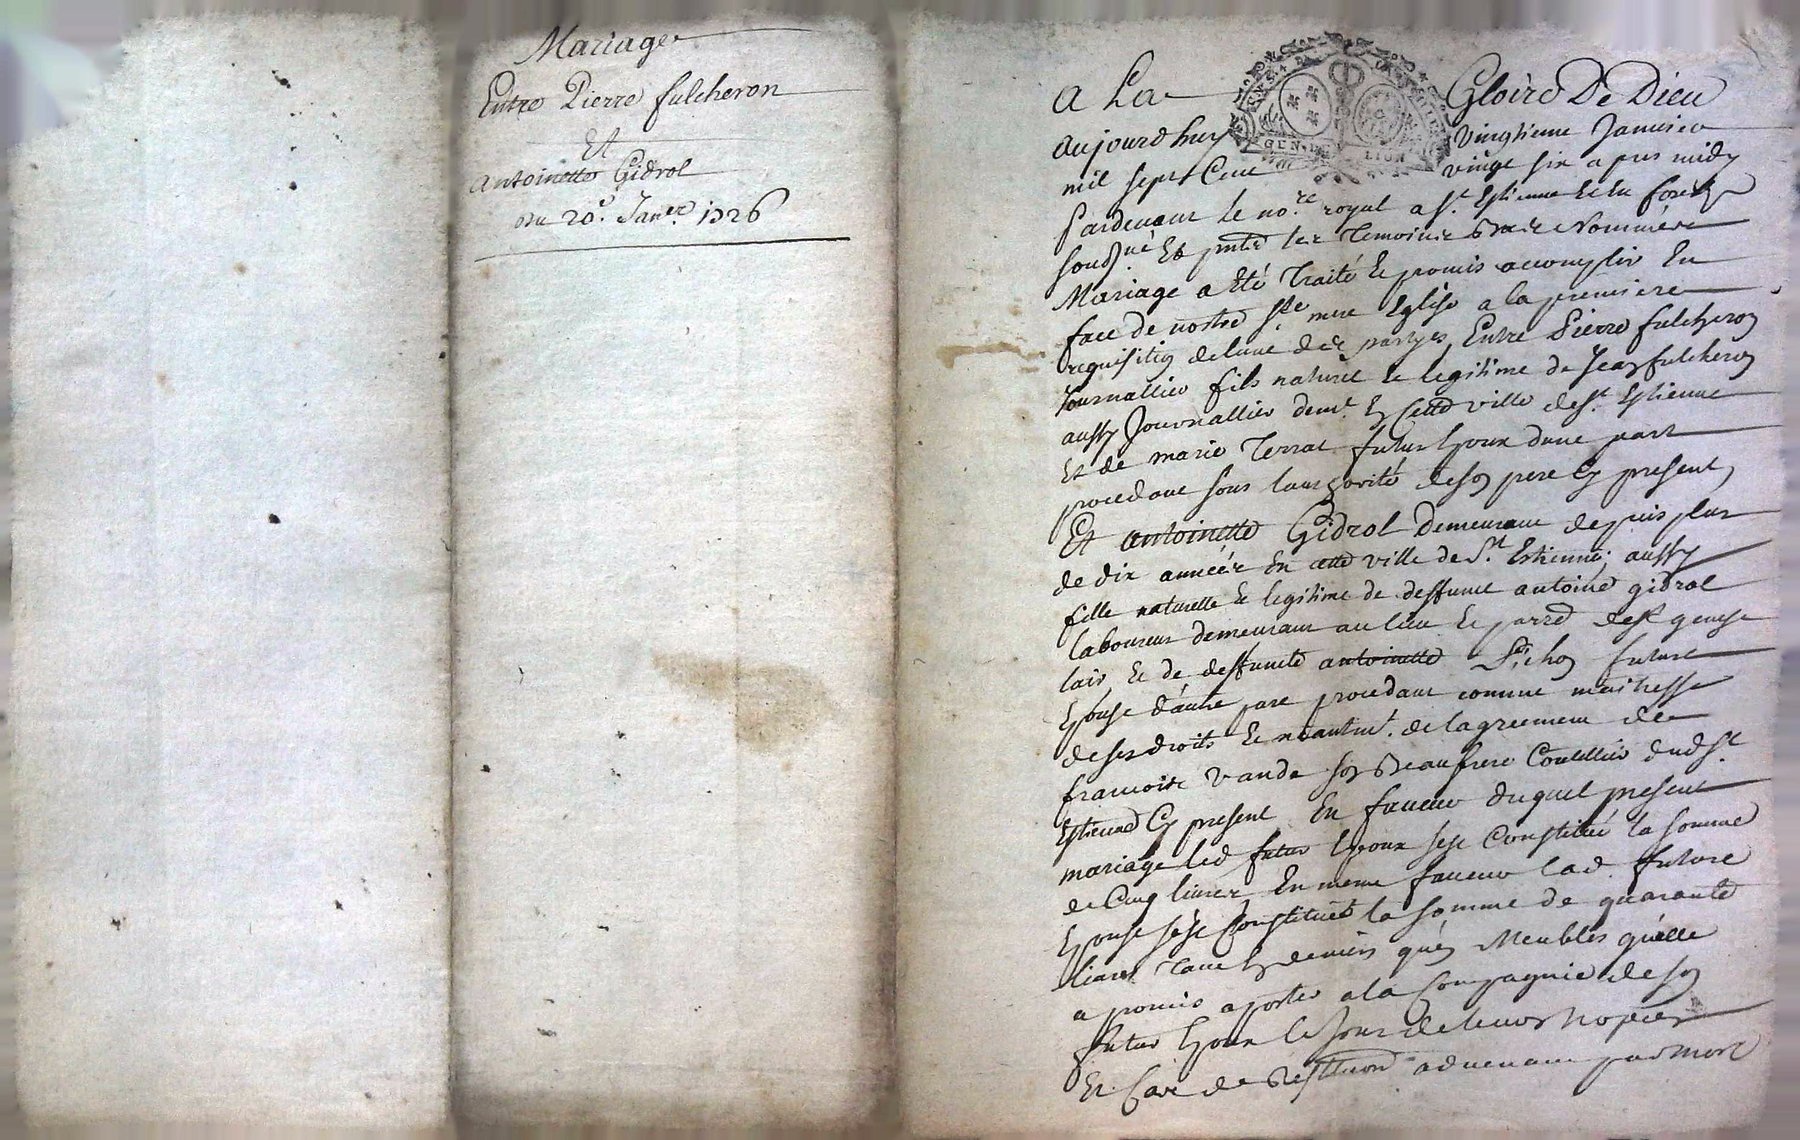 Mariage
Entre Pierre fulcheron
Et
Antoinette Gidrol
du 20e. Janer. 1726
A La Gloire De Dieu
aujourdhuy vingtieme Janvier
mil sept Cent vingt six apres midy
Pardevant le nore. royal a St. Estienne Et en forest
sousné. Et pnts les Temoins Bas Nommées
Mariage a Eté Traité Et promis accomplir En
face de nostre Ste mere Eglise a la premiere
requisition de lune des partyes, Entre Pierre fulcheron
Journallier fils naturel Et legitime de Jean fulcheron
aussy Journallier demt. En Cette ville de St. Estienne
Et de marie Terrat futur Epoux dune part
procedant sous lauthorité de son pere Cy present,
Et Antoinette Gidrol Demeurant depuis plus
de dix années En cette ville de St. Estienne, aussy
fille naturelle Et legitime de deffunct antoine gidrol
laboureur demeurant au lieu Et parre de St genest
lair, Et de deffuncte antoinette Pichon future
Epouse d'autre part procedant comme maitresse
de ses droits Et neantmt. de lagreement de
francois vande son Beaufrere Coutellier dud St.
Estienne Cy present En faveur duquel present
mariage led futur Epoux sest Constitué la somme
de Cinq livres, En meme faveur lad. future
Epouse sest Constituée la somme de quarante
livres Tant En deniers qu'en Meubles qu'elle
a promis aporter a la Compagnie de son
futur Epoux le Jour de leurs nopces
Et Cas de Restitution advenant par mort
GEN LION